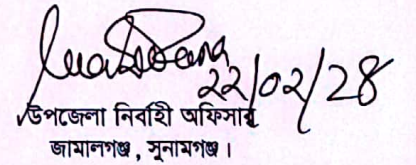 ২২/০২/২৪
উপজেলা নির্বাহী অফিসার
জামালগঞ্জ, সুনামগঞ্জ।